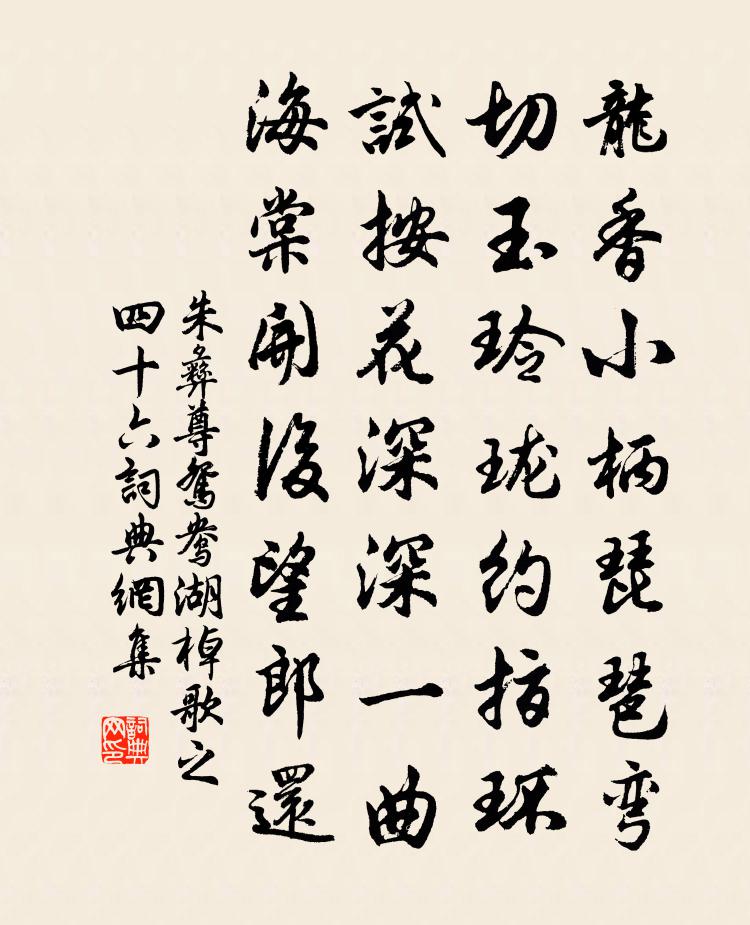 龍香小柄琵琶弯
切玉玲珑約指环
試按花深深一曲
海棠開後望郎還
朱彞尊鴛鴦湖棹歌之
四十六詞典網集
詞典
网印